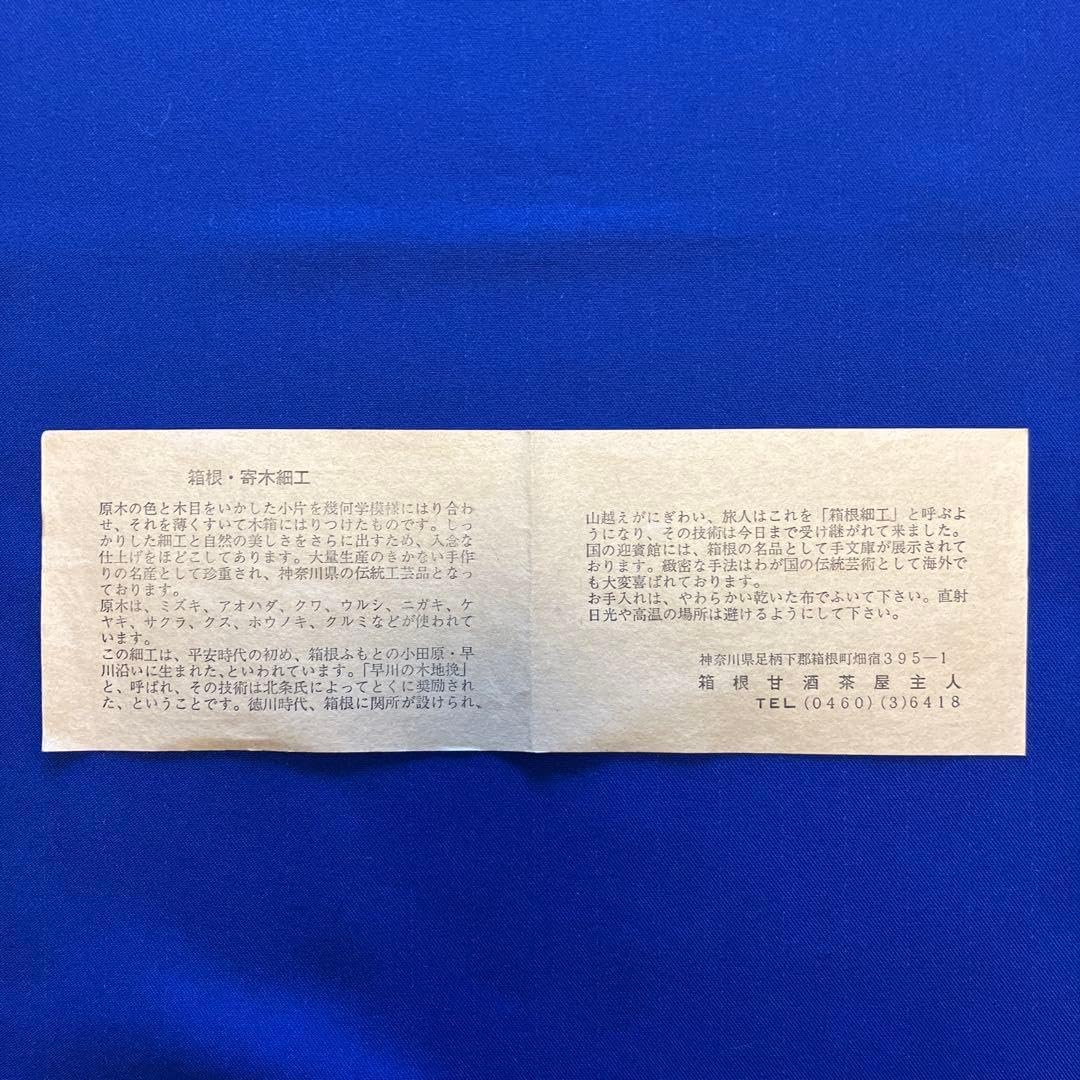 箱根・寄木細工
原木の色と木目をいかした小片を幾何学模様にはり合わ
せ、それを薄くすいて木箱にはりつけたものです。しっ
かりした細工と自然の美しさをさらに出すため、入念な
仕上げをほどこしてあります。大量生産のきかない手作
りの名産として珍重され、神奈川県の伝統工芸品となっ
ております。
原木は、ミズキ、アオハダ、クワ、ウルシ、ニガキ、ケ
ヤキ、サクラ、クス、ホウノキ、クルミなどが使われて
います。
この細工は、平安時代の初め、箱根ふもとの小田原・早
川沿いに生まれた、といわれています。「早川の木地挽」
と、呼ばれ、その技術は北条氏によってとくに奨励され
た、ということです。徳川時代、箱根に関所が設けられ、
山越えがにぎわい、旅人はこれを「箱根細工」と呼ぶよ
うになり、その技術は今日まで受け継がれて来ました。
国の迎賓館には、箱根の名品として手文庫が展示されて
おります。緻密な手法はわが国の伝統芸術として海外で
も大変喜ばれております。
お手入れは、やわらかい乾いた布でふいて下さい。直射
日光や高温の場所は避けるようにして下さい。
神奈川県足柄下郡箱根町畑宿395−1
箱根甘酒茶屋主人
TEL(0460)(3)6418